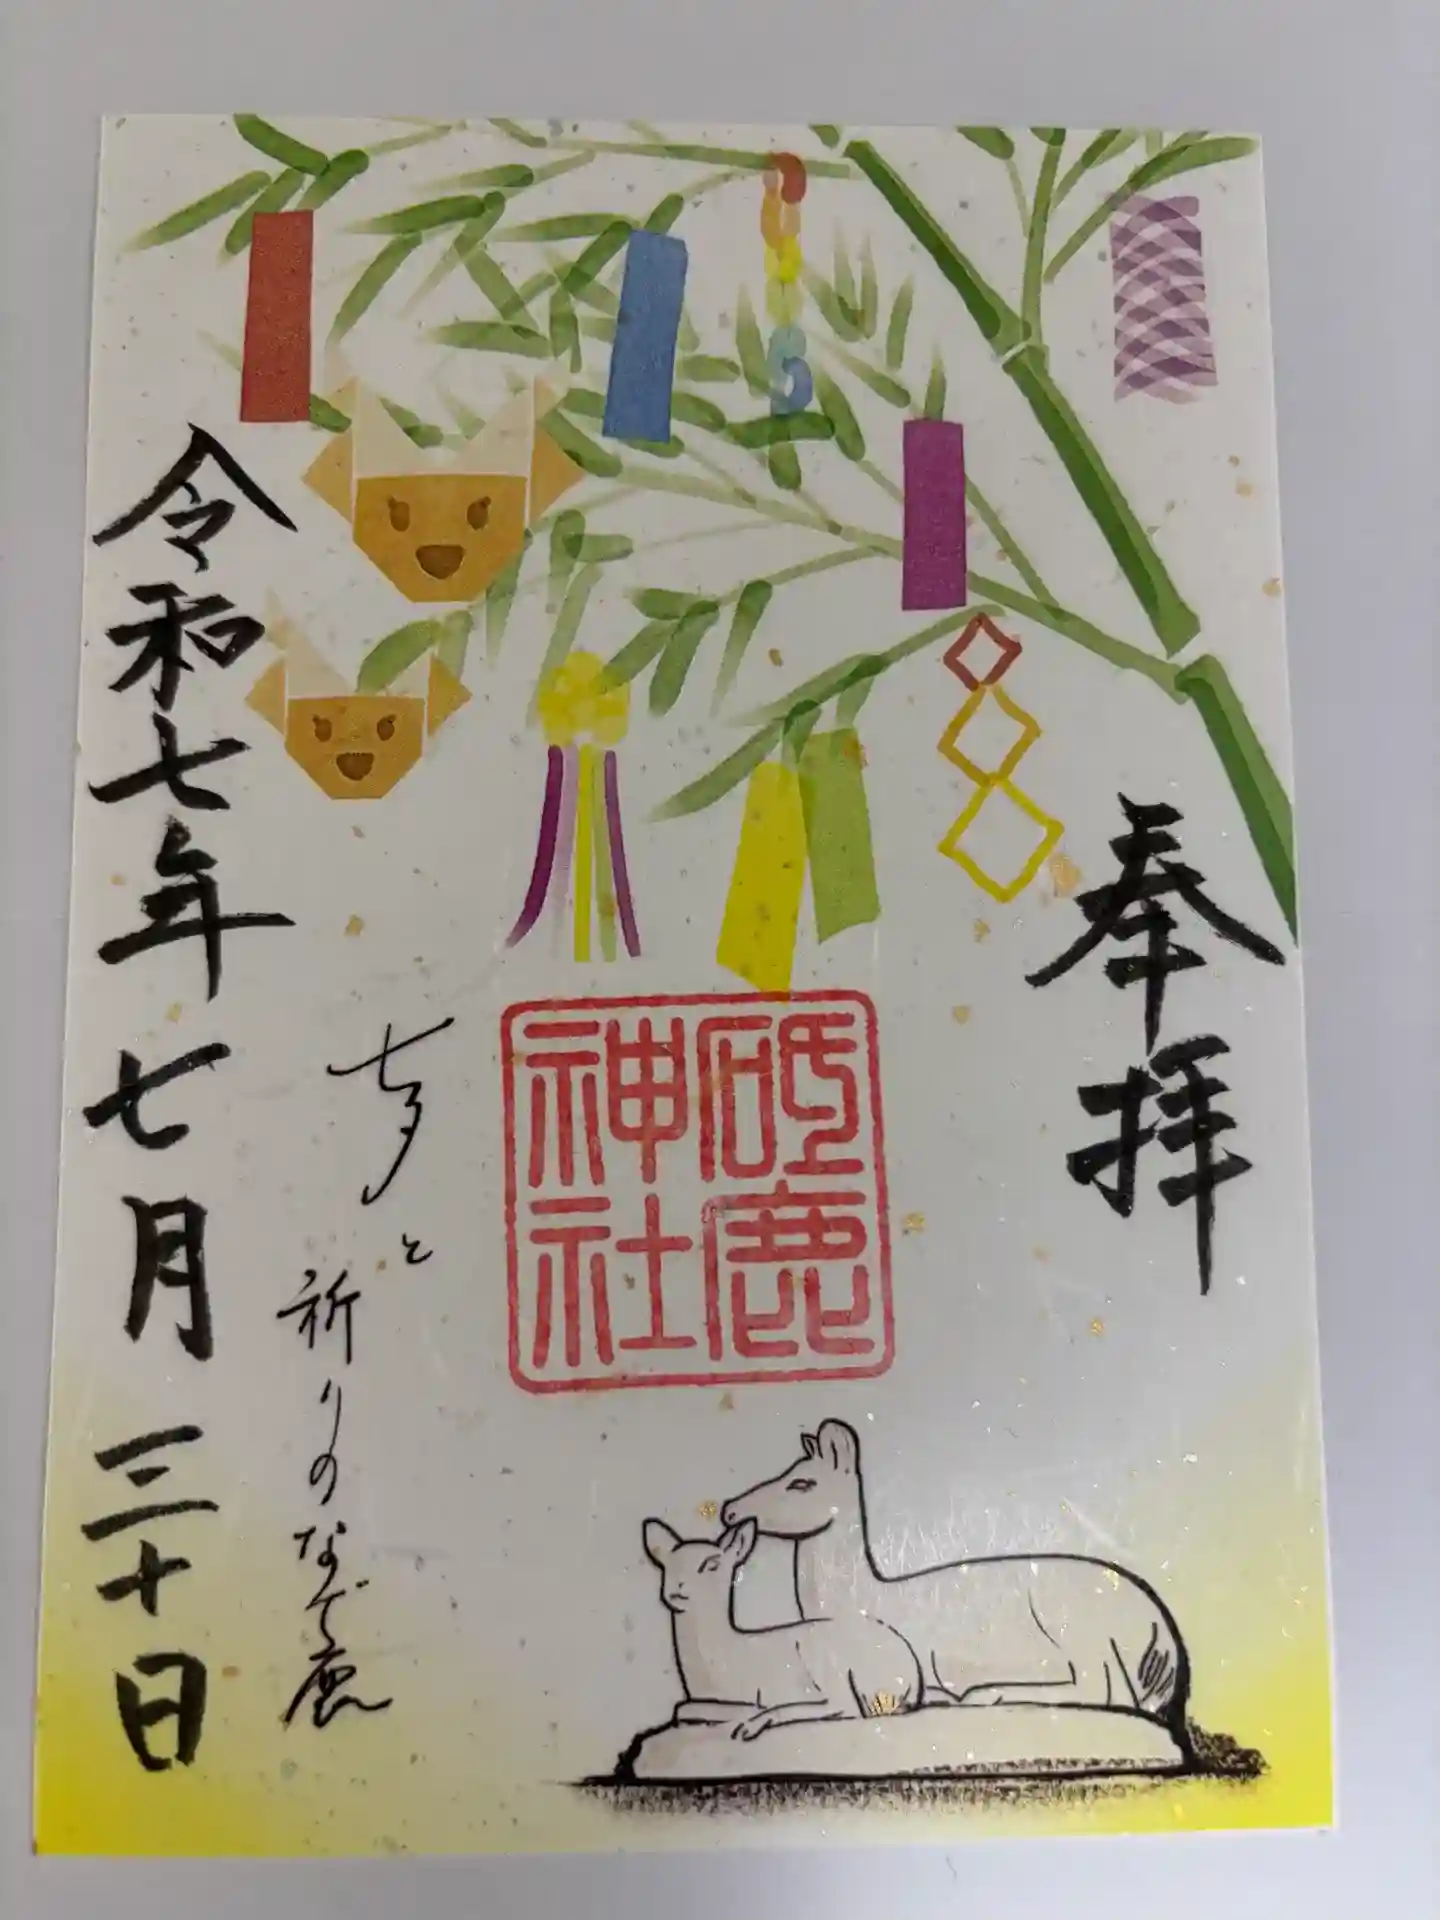 奉拝
砥鹿
神社
と
祈りのなで鹿
令和七年七月三十日